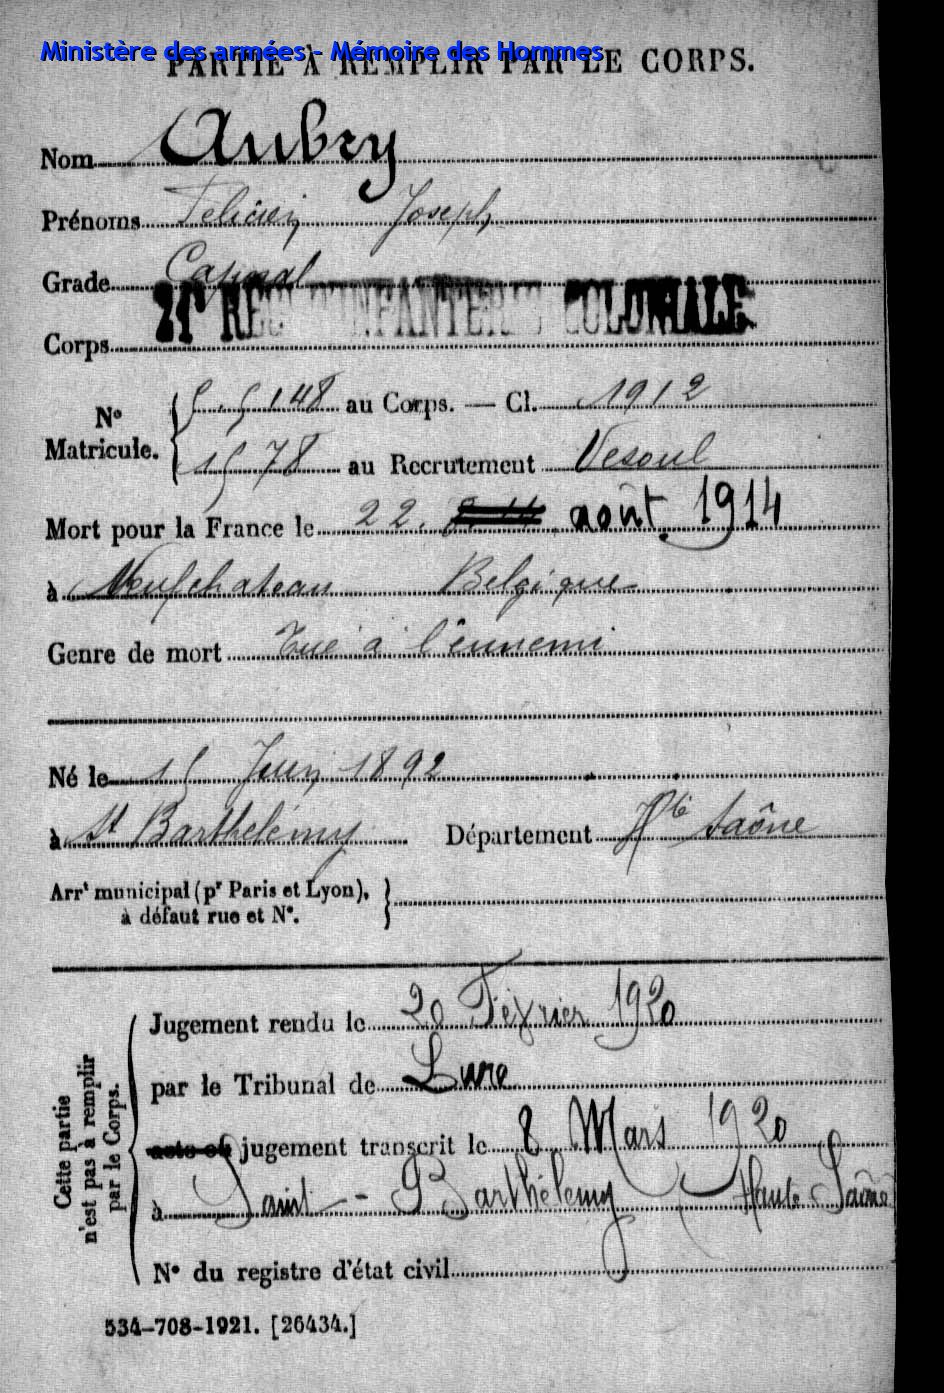 Ministère des armées - Mémoire des Hommes
PARTIE À REMPLIR PAR LE CORPS.
Nom Aubry
Prénoms Félicien Joseph
Grade Caporal
Corps 21e REGt D'INFANTERIE COLONIALE
No Matricule. 5.5148 au Corps. — Cl. 1912
1578 au Recrutement Vesoul
Mort pour la France le 22. août 1914
à Neufchateau Belgique
Genre de mort Tué à l'ennemi
Né le 15 Juin 1892
à St Barthélémy Département Hte Saône
Arrt municipal (pr Paris et Lyon),
à défaut rue et No.
Cette partie
n'est pas à remplir
par le Corps.
Jugement rendu le 20 Février 1920
par le Tribunal de Lure
acte ou jugement transcrit le 8 Mars 1920
à Saint-Barthélemy (Haute Saône
No du registre d'état civil
534-708-1921. [26434.]